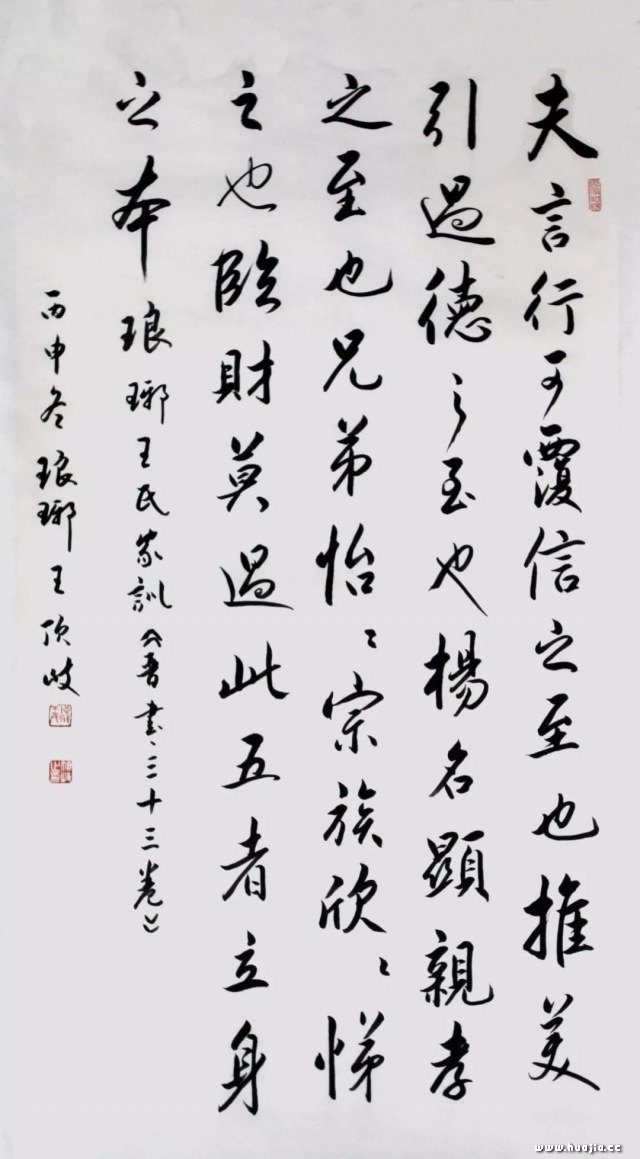 夫言行可覆信之至也推美
引過德之至也楊名顯親孝
之至也兄弟怡〻宗族欣〻悌
之也臨財莫過此五者立身
之本
琅琊王氏家訓《晉書、三十三卷》
丙申冬琅琊王頎岐
www.huajia.cc